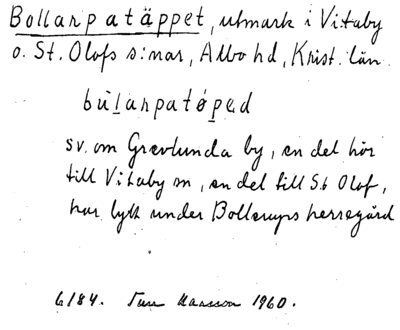 Bollarpatäppet, utmark i Vitaby
o. St. Olofs s:nar, Albo hd, Krist. län.
bùlarpatǿped
sv. om Grevlunda by, en del hör
till Vitaby sn, en del till St Olof,
har lytt under Bollerups herregård
6/84. Ture Hansson 1960.